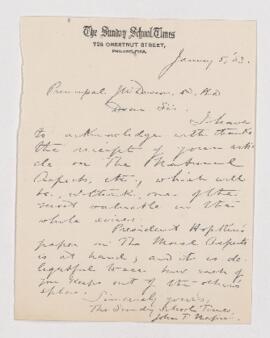 The Sunday School Times
725 CHESTNUT STREET,
PHILADELPHIA.
January 5, '83.
Principal J. W. Dawson,
Dear Sir:
I have
to acknowledge with thanks
the receipt of your arti-
cle on The Natural
Aspects, etc., which will
be, I think, one of the
most valuable in the
whole series.
President Hopkins's
paper on The Moral Aspects
is at hand, and it is de-
lightful to see how each of
you keeps out of the other's
sphere.
Sincerely yours,
The Sunday School Times,
John T. Napier